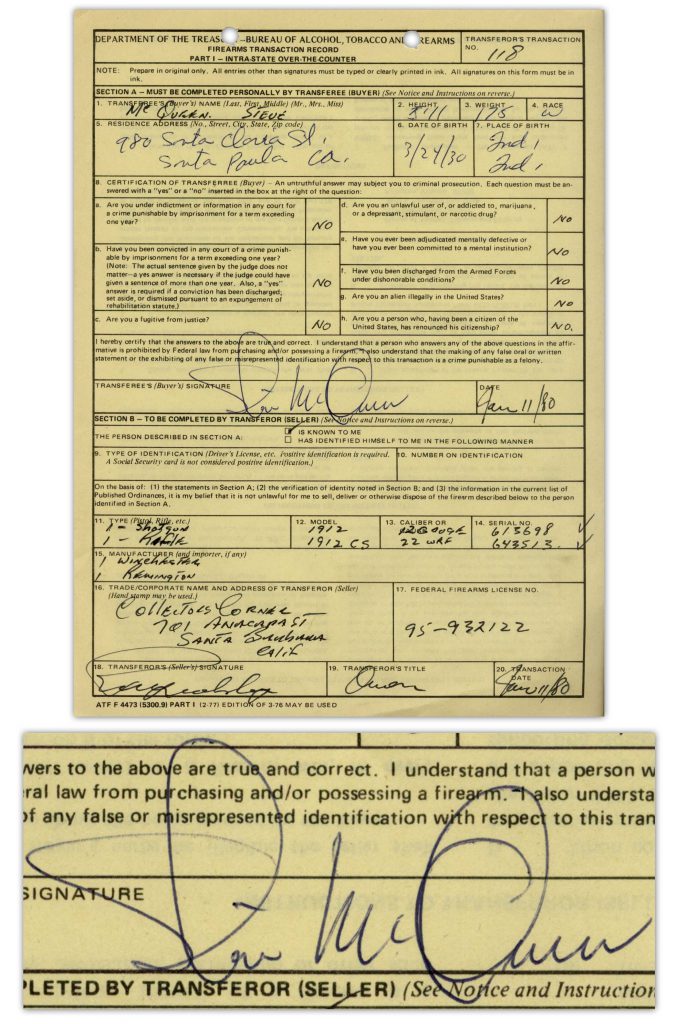 DEPARTMENT OF THE TREAS —BUREAU OF ALCOHOL, TOBACCO AND FIREARMS
FIREARMS TRANSACTION RECORD
PART I – INTRA-STATE OVER-THE-COUNTER
TRANSFEROR'S TRANSACTION
NO. 118
NOTE: Prepare in original only. All entries other than signatures must be typed or clearly printed in ink. All signatures on this form must be in
ink.
SECTION A – MUST BE COMPLETED PERSONALLY BY TRANSFEREE (BUYER) (See Notice and Instructions on reverse.)
1. TRANSFEREE'S (Buyer's) NAME (Last, First, Middle) (Mr., Mrs., Miss)
Mc Queen. Steve
2. HEIGHT
5'11
3. WEIGHT
175
4. RACE
W
5. RESIDENCE ADDRESS (No., Street, City, State, Zip code)
980 Snta Clara St.
Snta Paula Ca.
6. DATE OF BIRTH
3/24/30
7. PLACE OF BIRTH
Ind,
Ind,
8. CERTIFICATION OF TRANSFERREE (Buyer) – An untruthful answer may subject you to criminal prosecution. Each question must be an-
swered with a "yes" or a "no" inserted in the box at the right of the question:
a. Are you under indictment or information in any court for
a crime punishable by imprisonment for a term exceeding
one year?
NO
b. Have you been convicted in any court of a crime punish-
able by imprisonment for a term exceeding one year?
(Note: The actual sentence given by the judge does not
matter—a yes answer is necessary if the judge could have
given a sentence of more than one year. Also, a "yes"
answer is required if a conviction has been discharged,
set aside, or dismissed pursuant to an expungement of
rehabilitation statute.)
NO
c. Are you a fugitive from justice?
NO
d. Are you an unlawful user of, or addicted to, marijuana,
or a depressant, stimulant, or narcotic drug?
NO
e. Have you ever been adjudicated mentally defective or
have you ever been committed to a mental institution?
NO
f. Have you been discharged from the Armed Forces
under dishonorable conditions?
NO
g. Are you an alien illegally in the United States?
NO
h. Are you a person who, having been a citizen of the
United States, has renounced his citizenship?
NO.
I hereby certify that the answers to the above are true and correct. I understand that a person who answers any of the above questions in the affir-
mative is prohibited by Federal law from purchasing and/or possessing a firearm. I also understand that the making of any false oral or written
statement or the exhibiting of any false or misrepresented identification with respect to this transaction is a crime punishable as a felony.
TRANSFEREE'S (Buyer's) SIGNATURE
Steve McQueen
DATE
Jan 11/80
SECTION B – TO BE COMPLETED BY TRANSFEROR (SELLER) (See Notice and Instructions on reverse.)
THE PERSON DESCRIBED IN SECTION A:
IS KNOWN TO ME
HAS IDENTIFIED HIMSELF TO ME IN THE FOLLOWING MANNER
9. TYPE OF IDENTIFICATION (Driver's License, etc. Positive identification is required.
A Social Security card is not considered positive identification.)
10. NUMBER ON IDENTIFICATION
On the basis of: (1) the statements in Section A; (2) the verification of identity noted in Section B; and (3) the information in the current list of
Published Ordinances, it is my belief that it is not unlawful for me to sell, deliver or otherwise dispose of the firearm described below to the person
identified in Section A.
11. TYPE (Pistol, Rifle, etc.)
1 - Shotgun
1 - Rifle
12. MODEL
1912
1912 CS
13. CALIBER OR
12 GAUGE
22 WRF
14. SERIAL NO.
613698
643513.
15. MANUFACTURER (and importer, if any)
1 Winchester
1 Remington
16. TRADE/CORPORATE NAME AND ADDRESS OF TRANSFEROR (Seller)
(Hand stamp may be used.)
Collectors Corner
701 Anacapa St
Santa Barbara
Calif
17. FEDERAL FIREARMS LICENSE NO.
95-932122
18. TRANSFEROR'S (Seller's) SIGNATURE
19. TRANSFEROR'S TITLE
Owner
20. TRANSACTION
DATE
Jan 11/80
ATF F 4473 (5300.9) PART I (2-77) EDITION OF 3-76 MAY BE USED
wers to the above are true and correct. I understand that a person w
ral law from purchasing and/or possessing a firearm. I also understa
of any false or misrepresented identification with respect to this tran
SIGNATURE
Steve McQueen
PLETED BY TRANSFEROR (SELLER) (See Notice and Instruction